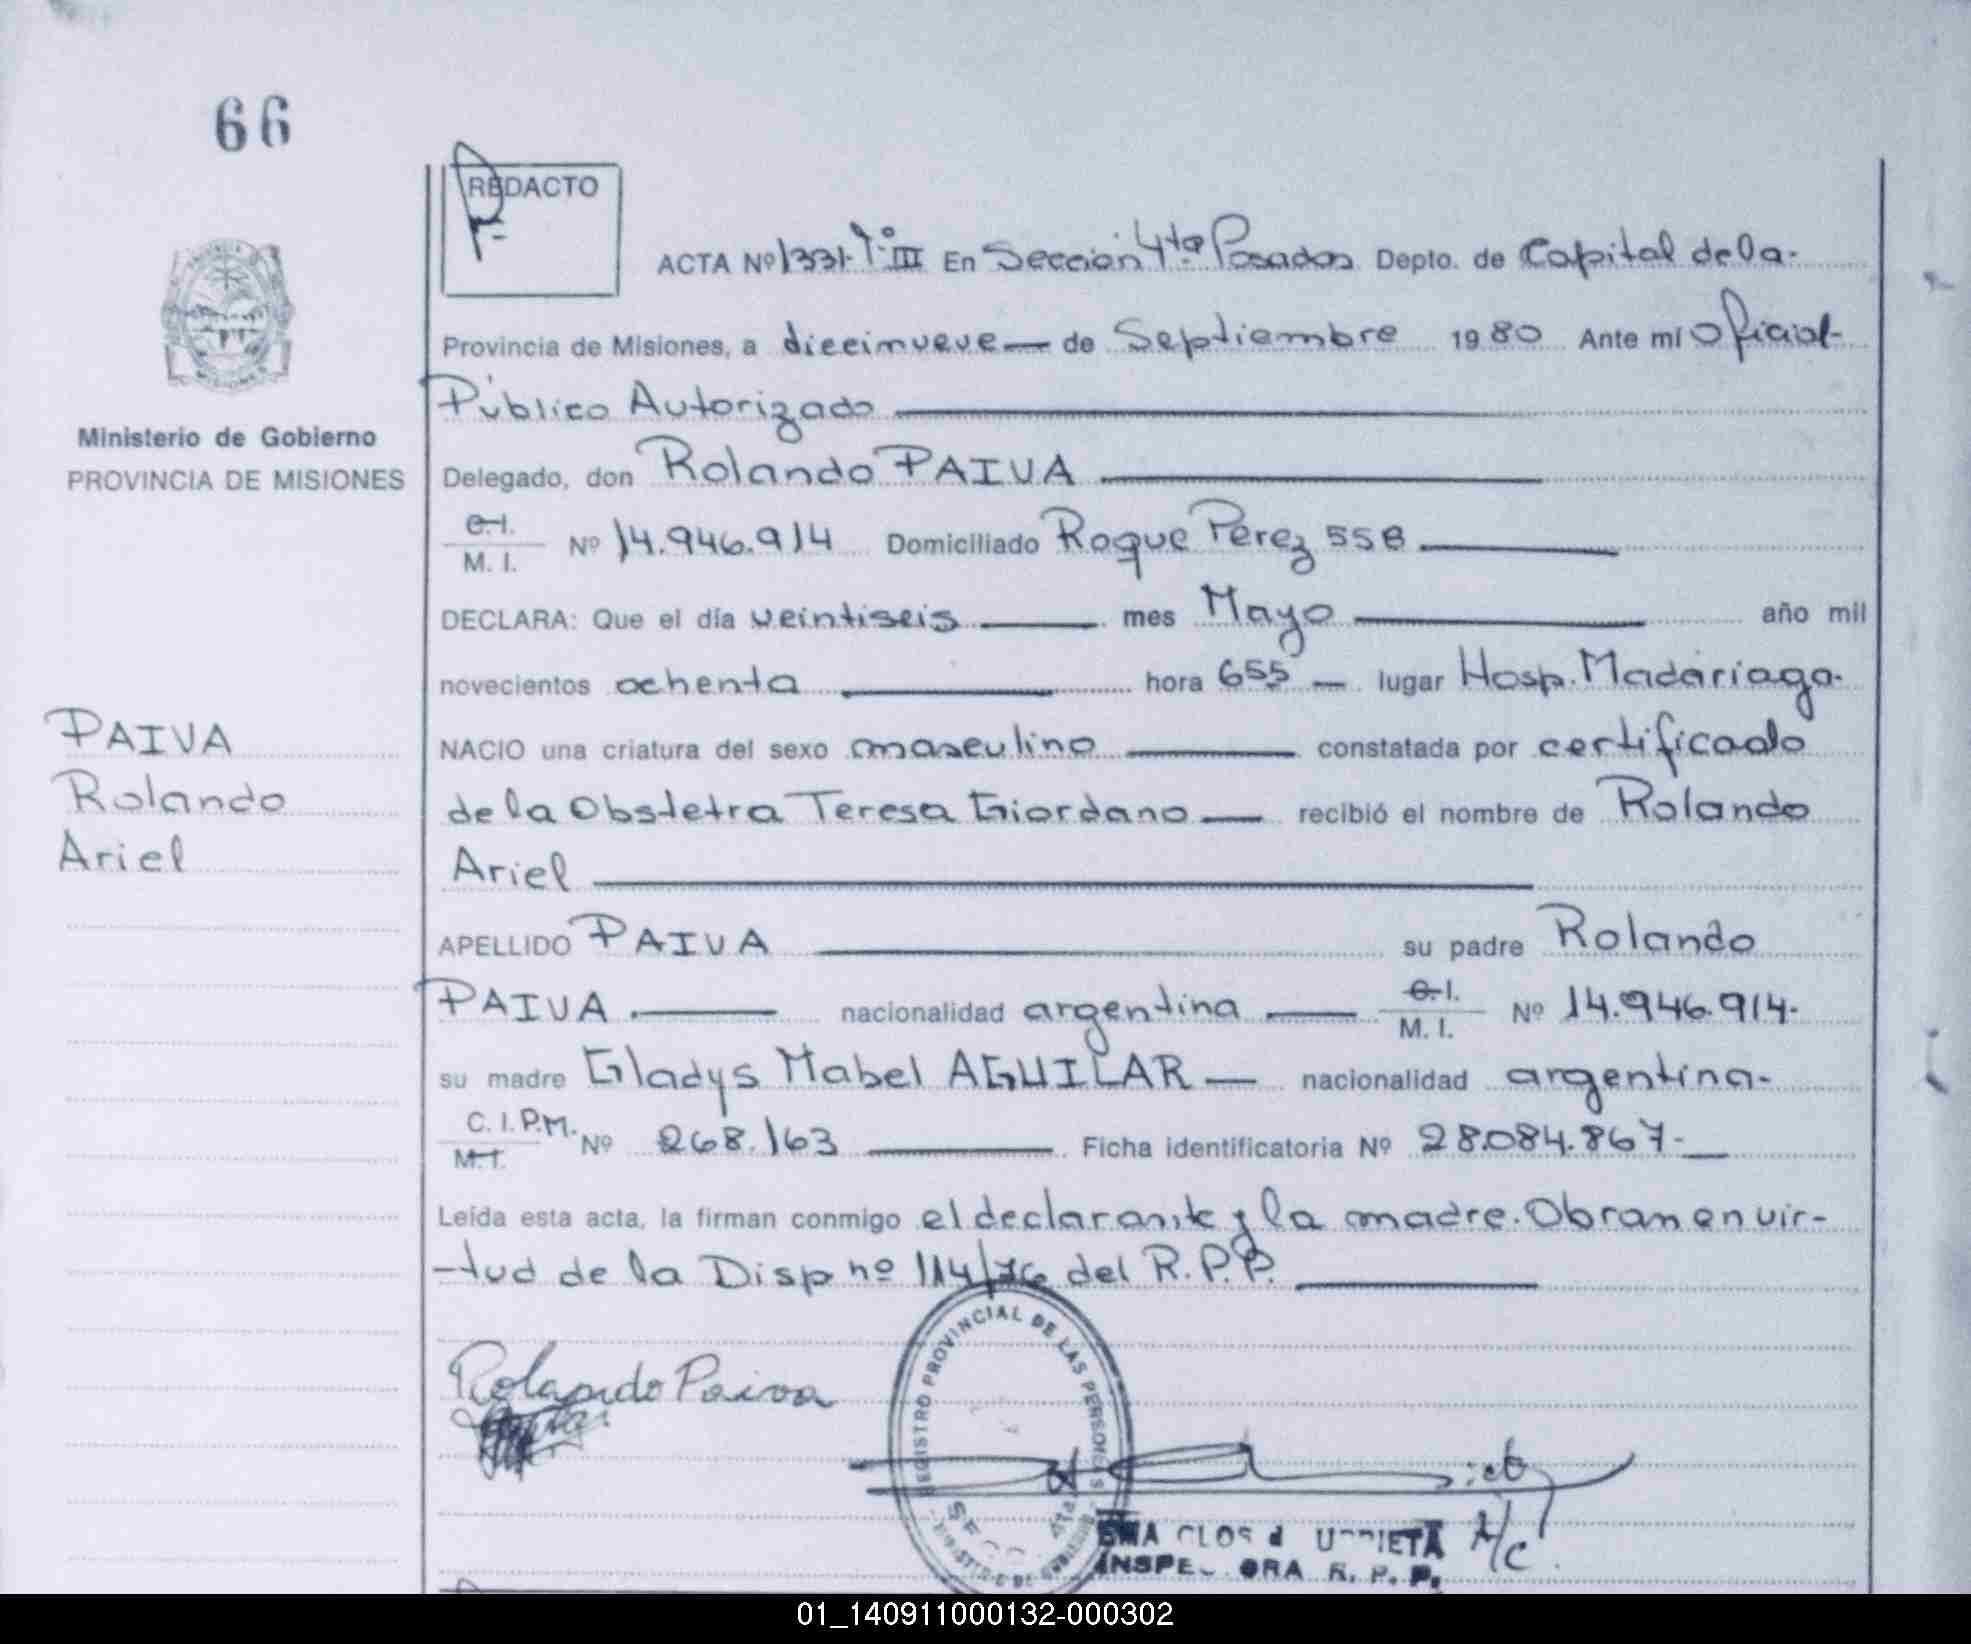 66
REDACTO
ACTA Nº 1331-Tº III En Sección 4ta Posadas Depto. de Capital de la
Provincia de Misiones, a diecinueve de Septiembre 1980 Ante mí Oficial
Público Autorizado
Delegado, don Rolando PAIVA
C.I.
M. I.
Nº 14.946.914 Domiciliado Roque Perez 558
DECLARA: Que el día veintiseis mes Mayo año mil
novecientos ochenta hora 655 lugar Hosp. Madariaga
NACIO una criatura del sexo masculino constatada por certificado
de la Obstetra Teresa Giordano recibió el nombre de Rolando
Ariel
APELLIDO PAIVA su padre Rolando
PAIVA nacionalidad argentina C.I.
M. I.
Nº 14.946.914
su madre Gladys Mabel AGUILAR nacionalidad argentina
C. I. P.M.
M.I.
Nº 268.163 Ficha identificatoria Nº 28.084.867
Leída esta acta, la firman conmigo el declarante y la madre. Obran en vir-
-tud de la Disp nº 114/76 del R.P.P.
Rolando Paiva
REGISTRO PROVINCIAL DE LAS PERSONAS
4ta
A/C
R. P. P.
Ministerio de Gobierno
PROVINCIA DE MISIONES
PAIVA
Rolando
Ariel
01_140911000132-000302